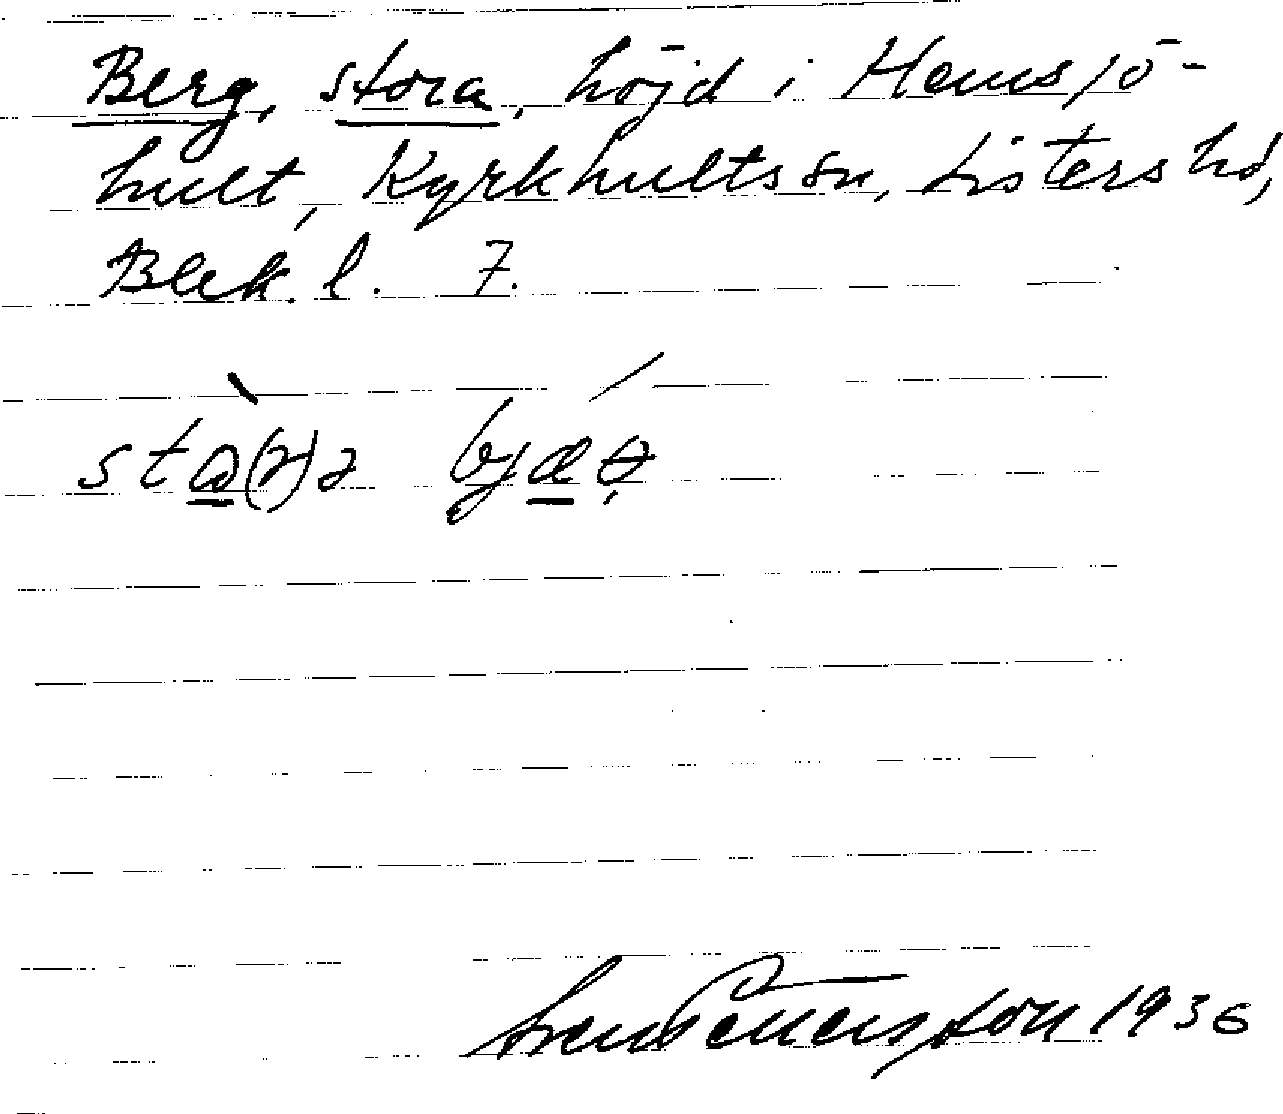 Berg, stora, höjd i Hemsjö-
hult, Kyrkhults sn, Listers hd,
Blek. l. 7.
1936